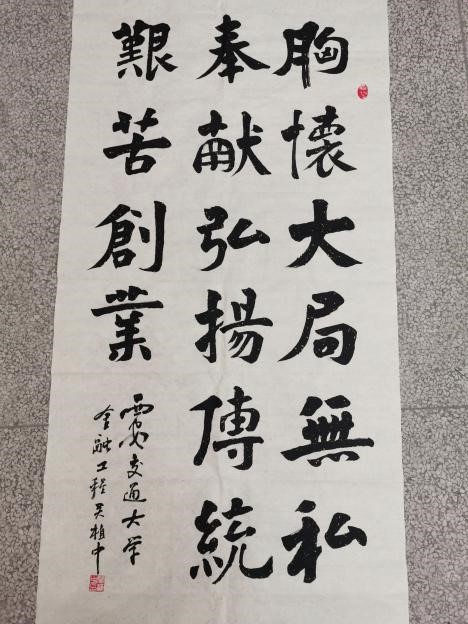 胸懷大局無私
奉献弘揚傳統
艱苦創業
西安交通大学
金融工程吴植中